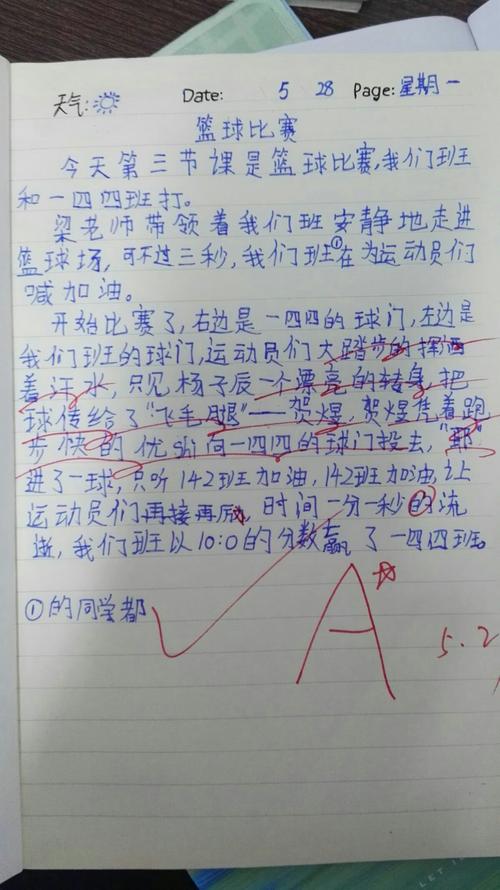 天气: Date: 5 28 Page: 星期一
篮球比赛
今天第三节课是篮球比赛,我们班
和一四四班打。
梁老师带领着我们班安静地走进
篮球场,可不过三秒,我们班①在为运动员们
喊加油。
开始比赛了,右边是一四四的球门,左边是
我们班的球门,运动员们大踏步的挥洒
着汗水,只见杨子辰一个漂亮的转身,把
球传给了“飞毛腿”——贺煜,贺煜凭着跑
步快的优势向一四四的球门投去,“耶”
进了一球,只听142班加油,142班加油,让
运动员们再接再厉,时间一分一秒的流
逝,我们班以10:0的分数赢了一四四班。
①的同学都
A
5.2